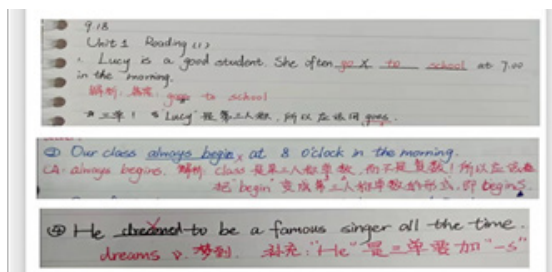 9.18
Unit 1 Reading (1)
1. Lucy is a good student. She often go × to school at 7.00
in the morning.
解析: 短语: goes to school
三单! "Lucy" 是第三人称, 所以应该用 goes.
② Our class always begin × at 8 o'clock in the morning.
CA: always begins. 解析 class 是第三人称单数, 而不是复数! 所以应该
把"begin"变成第三人称单数的形式, 即 begins.
④ He dreamed to be a famous singer all the time.
dreams v. 梦到. 补充: "He" 是三单要加 "-s"